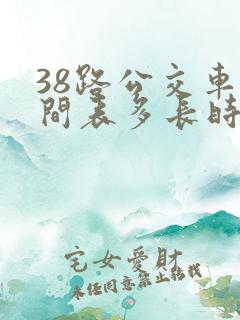 38路公交車
間表多長時
宅女愛財
未任同意禁止转载